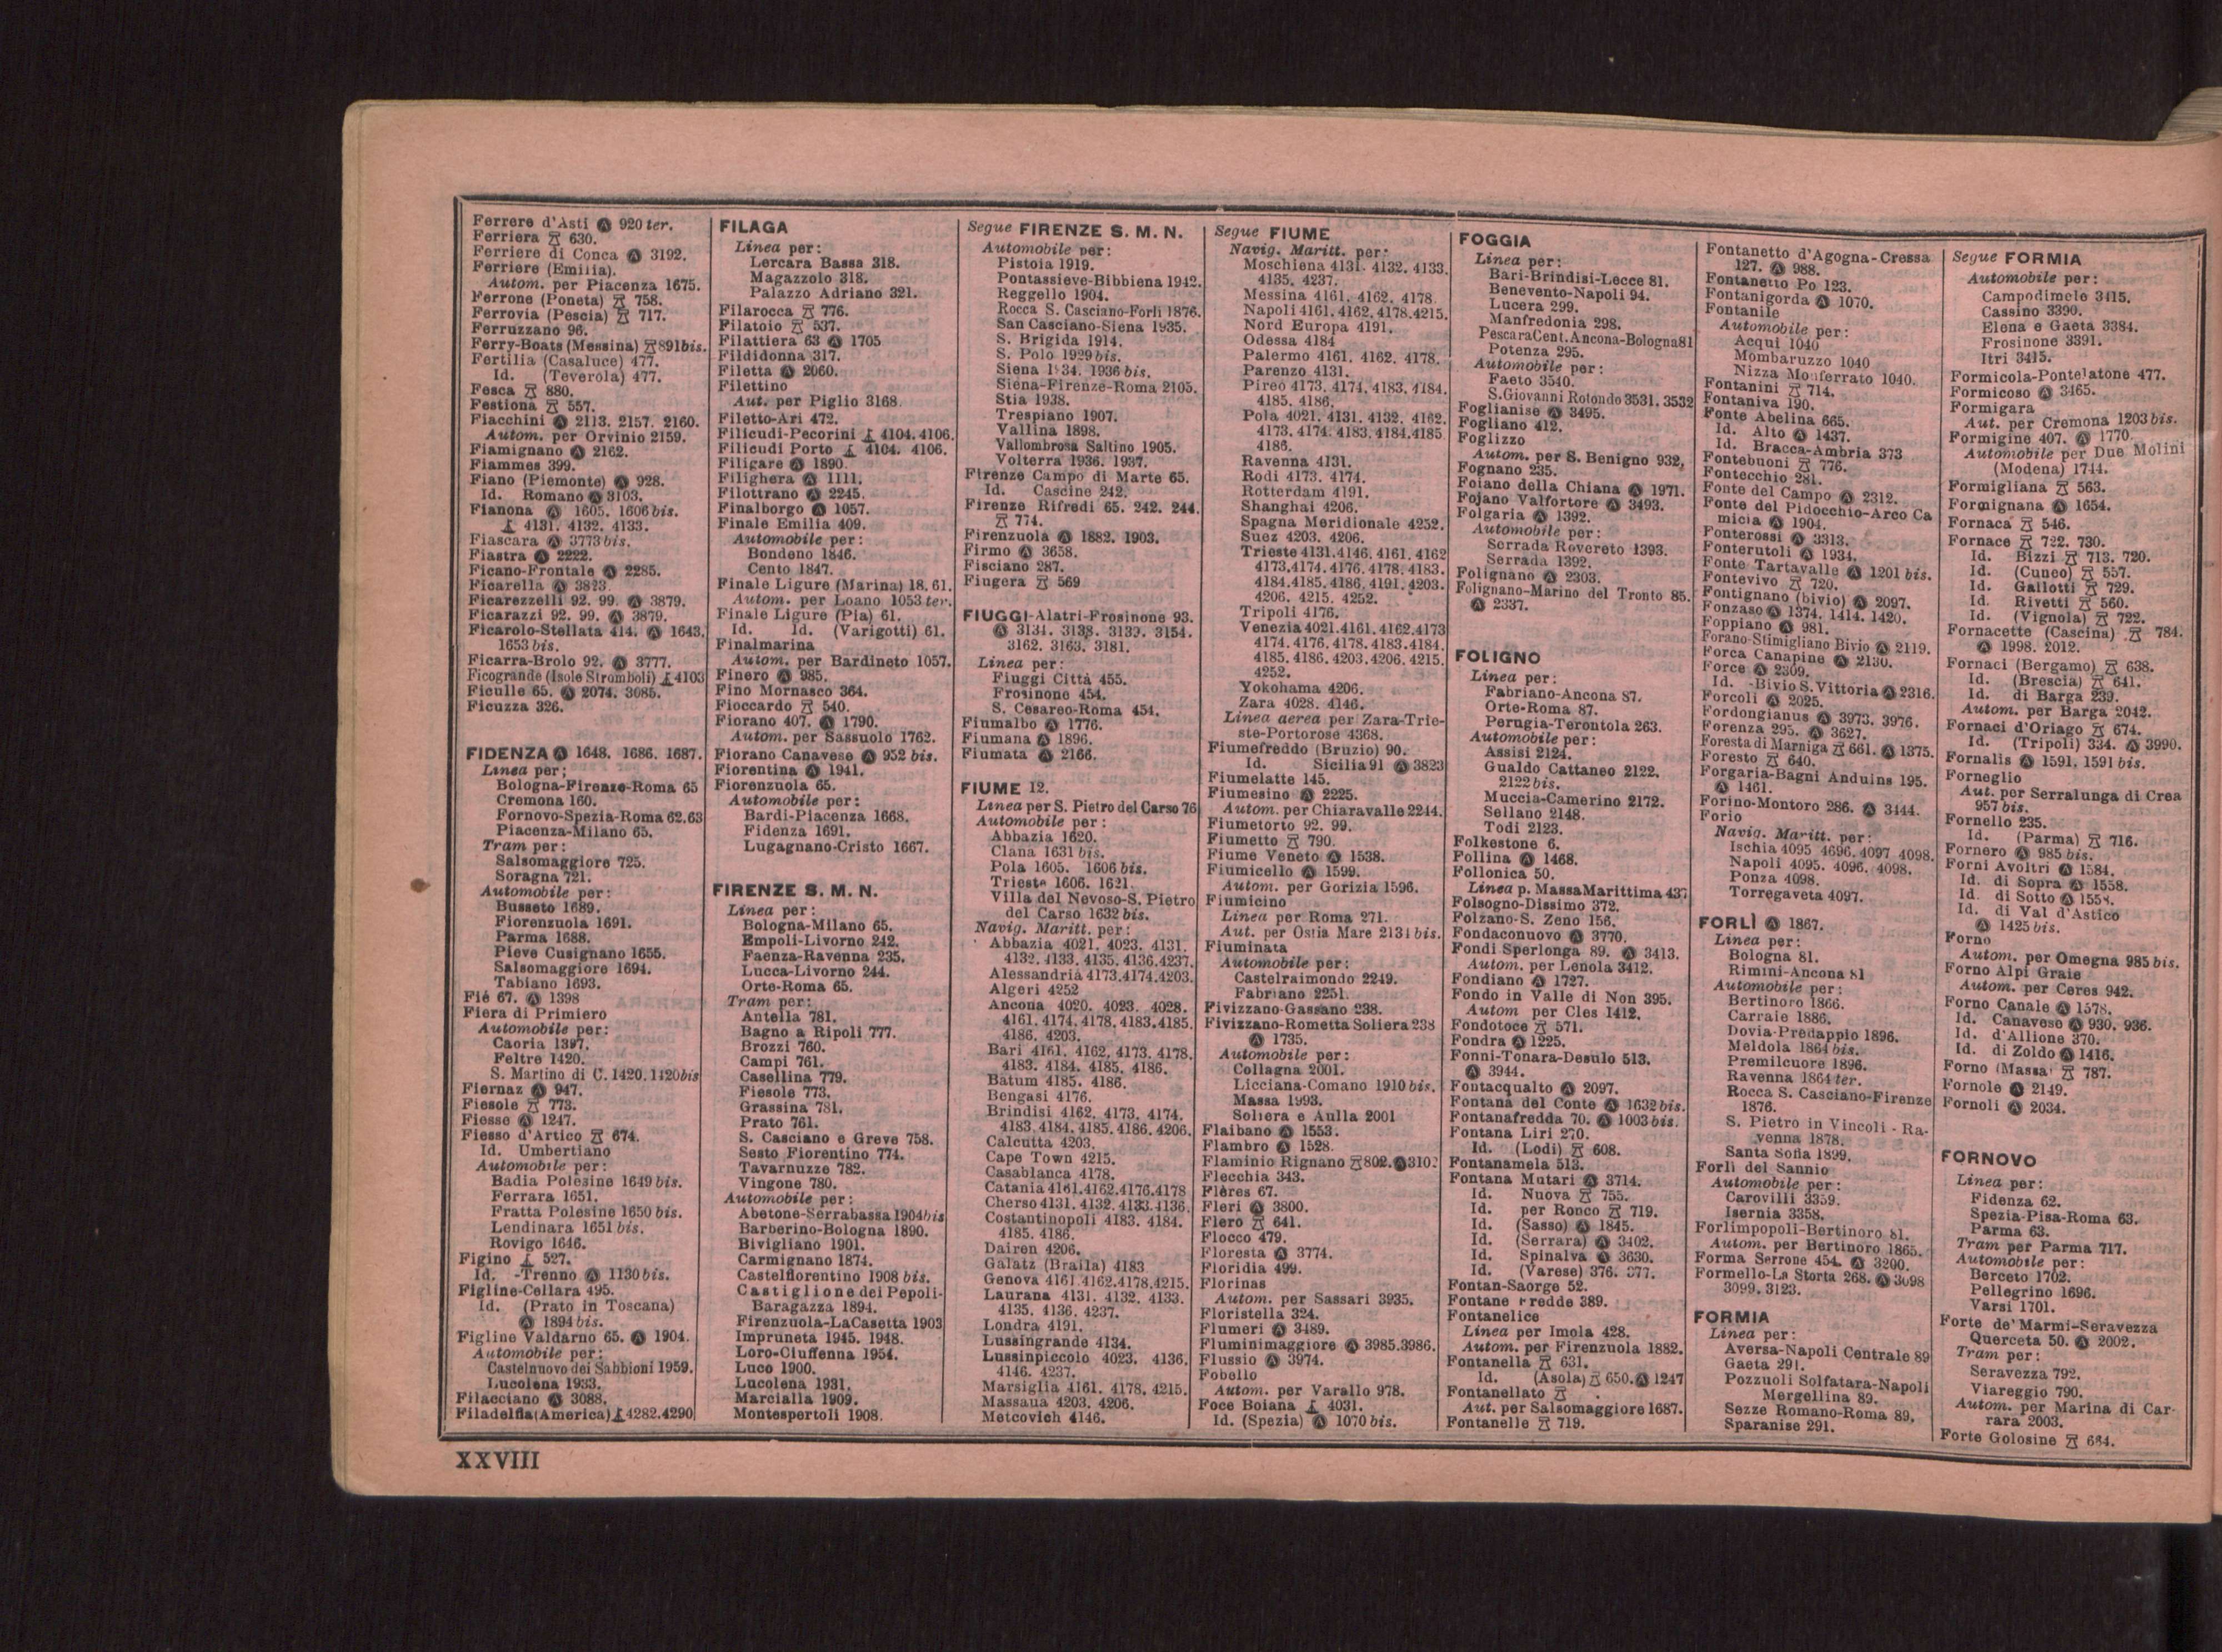 Ferrere d'Asti Ⓐ 920 ter.
Ferriera 630.
Ferriere di Conca Ⓐ 3192.
Ferriere (Emilia).
Autom. per Piacenza 1675.
Ferrone (Poneta) 758.
Ferrovia (Pescia) 717.
Ferruzzano 96.
Ferry-Boats (Messina) 891 bis.
Fertilia (Casaluce) 477.
Id. (Teverola) 477.
Fesca 880.
Festiona 557.
Fiacchini Ⓐ 2113. 2157. 2160.
Autom. per Orvinio 2159.
Fiamignano Ⓐ 2162.
Fiammes 399.
Fiano (Piemonte) Ⓐ 928.
Id. Romano Ⓐ 3103.
Fianona Ⓐ 1605. 1606 bis.
4131. 4132. 4133.
Fiascara Ⓐ 3773 bis.
Fiastra Ⓐ 2222.
Ficano-Frontale Ⓐ 2285.
Ficarella Ⓐ 3823
Ficarezzelli 92. 99. Ⓐ 3879.
Ficarazzi 92. 99. Ⓐ 3879.
Ficarolo-Stellata 414. Ⓐ 1643.
1653 bis.
Ficarra-Brolo 92. Ⓐ 3777.
Ficogrande (Isole Stromboli) 4103
Ficulle 65. Ⓐ 2074. 3085.
Ficuzza 326.
FIDENZA Ⓐ 1648. 1686. 1687.
Linea per:
Bologna-Firenze-Roma 65
Cremona 160.
Fornovo-Spezia-Roma 62.63
Piacenza-Milano 65.
Tram per:
Salsomaggiore 725.
Soragna 721.
Automobile per:
Busseto 1689.
Fiorenzuola 1691.
Parma 1688.
Pieve Cusignano 1655.
Salsomaggiore 1694.
Tabiano 1693.
Fié 67. Ⓐ 1398
Fiera di Primiero
Automobile per:
Caoria 1397.
Feltre 1420.
S. Martino di C. 1420. 1420 bis
Fiernaz Ⓐ 947.
Fiesole 773.
Fiesse Ⓐ 1247.
Fiesso d'Artico 674.
Id. Umbertiano
Automobile per:
Badia Polesine 1649 bis.
Ferrara 1651.
Fratta Polesine 1650 bis.
Lendinara 1651 bis.
Rovigo 1646.
Figino 527.
Id. -Trenno Ⓐ 1130 bis.
Figline-Cellara 495.
Id. (Prato in Toscana)
Ⓐ 1894 bis.
Figline Valdarno 65. Ⓐ 1904.
Automobile per:
Castelnuovo dei Sabbioni 1959.
Lucolena 1933.
Filacciano Ⓐ 3088.
Filadelfia (America) 4282.4290
FILAGA
Linea per:
Lercara Bassa 318.
Magazzolo 318.
Palazzo Adriano 321.
Filarocca 776.
Filatoio 537.
Filattiera 63 Ⓐ 1705
Fildidonna 317.
Filetta Ⓐ 2060.
Filettino
Aut. per Piglio 3168.
Filetto-Ari 472.
Filicudi-Pecorini 4104. 4106.
Filicudi Porto 4104. 4106.
Filigare Ⓐ 1890.
Filighera Ⓐ 1111.
Filottrano Ⓐ 2245.
Finalborgo Ⓐ 1057.
Finale Emilia 409.
Automobile per:
Bondeno 1846.
Cento 1847.
Finale Ligure (Marina) 18. 61.
Autom. per Loano 1053 ter.
Finale Ligure (Pia) 61.
Id. Id. (Varigotti) 61.
Finalmarina
Autom. per Bardineto 1057.
Finero Ⓐ 985.
Fino Mornasco 364.
Fioccardo 540.
Fiorano 407. Ⓐ 1790.
Autom. per Sassuolo 1762.
Fiorano Canavese Ⓐ 952 bis.
Fiorentina Ⓐ 1941.
Fiorenzuola 65.
Automobile per:
Bardi-Piacenza 1668.
Fidenza 1691.
Lugagnano-Cristo 1667.
FIRENZE S. M. N.
Linea per:
Bologna-Milano 65.
Empoli-Livorno 242.
Faenza-Ravenna 235.
Lucca-Livorno 244.
Orte-Roma 65.
Tram per:
Antella 781.
Bagno a Ripoli 777.
Brozzi 760.
Campi 761.
Casellina 779.
Fiesole 773.
Grassina 781.
Prato 761.
S. Casciano e Greve 758.
Sesto Fiorentino 774.
Tavarnuzze 782.
Vingone 780.
Automobile per:
Abetone-Serrabassa 1904 bis
Barberino-Bologna 1890.
Bivigliano 1901.
Carmignano 1874.
Castelfiorentino 1908 bis.
Castiglione dei Pepoli-
Baragazza 1894.
Firenzuola-LaCasetta 1903
Impruneta 1945. 1948.
Loro-Ciuffenna 1954.
Luco 1900.
Lucolena 1931.
Marcialla 1909.
Montespertoli 1908.
Segue FIRENZE S. M. N.
Automobile per:
Pistoia 1919.
Pontassieve-Bibbiena 1942.
Reggello 1904.
Rocca S. Casciano-Forlì 1876.
San Casciano-Siena 1935.
S. Brigida 1914.
S. Polo 1929 bis.
Siena 1934. 1936 bis.
Siena-Firenze-Roma 2105.
Stia 1938.
Trespiano 1907.
Vallina 1898.
Vallombrosa Saltino 1905.
Volterra 1936. 1937.
Firenze Campo di Marte 65.
Id. Cascine 242.
Firenze Rifredi 65. 242. 244.
774.
Firenzuola Ⓐ 1882. 1903.
Firmo Ⓐ 3658.
Fisciano 287.
Fiugera 569
FIUGGI-Alatri-Frosinone 93.
Ⓐ 3134. 3138. 3139. 3154.
3162. 3163. 3181.
Linea per:
Fiuggi Città 455.
Frosinone 454.
S. Cesareo-Roma 454.
Fiumalbo Ⓐ 1776.
Fiumana Ⓐ 1896.
Fiumata Ⓐ 2166.
FIUME 12.
Linea per S. Pietro del Carso 76
Automobile per:
Abbazia 1620.
Clana 1631 bis.
Pola 1605. 1606 bis.
Trieste 1606. 1621.
Villa del Nevoso-S. Pietro
del Carso 1632 bis.
Navig. Maritt. per:
Abbazia 4021. 4023. 4131.
4132. 4133. 4135. 4136.4237.
Alessandria 4173.4174.4203.
Algeri 4252
Ancona 4020. 4023. 4028.
4161. 4174. 4178. 4183.4185.
4186. 4203.
Bari 4161. 4162. 4173. 4178.
4183. 4184. 4185. 4186.
Batum 4185. 4186.
Bengasi 4176.
Brindisi 4162. 4173. 4174.
4183. 4184. 4185. 4186. 4206.
Calcutta 4203.
Cape Town 4215.
Casablanca 4178.
Catania 4161.4162.4176.4178
Cherso 4131. 4132. 4133.4136.
Costantinopoli 4183. 4184.
4185. 4186.
Dairen 4206.
Galatz (Braila) 4183
Genova 4161.4162.4178.4215.
Laurana 4131. 4132. 4133.
4135. 4136. 4237.
Londra 4191.
Lussingrande 4134.
Lussinpiccolo 4023. 4136.
4146. 4237.
Marsiglia 4161. 4178. 4215.
Massaua 4203. 4206.
Metcovich 4146.
Segue FIUME
Navig. Maritt. per:
Moschiena 4131. 4132. 4133.
4135. 4237.
Messina 4161. 4162. 4178.
Napoli 4161. 4162. 4178.4215.
Nord Europa 4191.
Odessa 4184
Palermo 4161. 4162. 4178.
Parenzo 4131.
Pireo 4173. 4174. 4183. 4184.
4185. 4186.
Pola 4021. 4131. 4132. 4162.
4173. 4174. 4183. 4184.4185.
4186.
Ravenna 4131.
Rodi 4173. 4174.
Rotterdam 4191.
Shanghai 4206.
Spagna Meridionale 4252.
Suez 4203. 4206.
Trieste 4131.4146. 4161. 4162
4173.4174. 4176. 4178. 4183.
4184.4185. 4186. 4191. 4203.
4206. 4215. 4252.
Tripoli 4176.
Venezia 4021.4161. 4162.4173
4174. 4176. 4178. 4183.4184.
4185. 4186. 4203. 4206. 4215.
4252.
Yokohama 4206.
Zara 4028. 4146.
Linea aerea per Zara-Trie-
ste-Portorose 4368.
Fiumefreddo (Bruzio) 90.
Id. Sicilia 91 Ⓐ 3823
Fiumelatte 145.
Fiumesino Ⓐ 2225.
Autom. per Chiaravalle 2244.
Fiumetorto 92. 99.
Fiumetto 790.
Fiume Veneto Ⓐ 1538.
Fiumicello Ⓐ 1599.
Autom. per Gorizia 1596.
Fiumicino
Linea per Roma 271.
Aut. per Ostia Mare 2131 bis.
Fiuminata
Automobile per:
Castelraimondo 2249.
Fabriano 2251.
Fivizzano-Gassano 238.
Fivizzano-Rometta Soliera 238
Ⓐ 1735.
Automobile per:
Collagna 2001.
Licciana-Comano 1910 bis.
Massa 1993.
Soliera e Aulla 2001
Flaibano Ⓐ 1553.
Flambro Ⓐ 1528.
Flaminio Rignano 802. Ⓐ
Flecchia 343.
Flères 67.
Fleri Ⓐ 3800.
Flero 641.
Flocco 479.
Floresta Ⓐ 3774.
Floridia 499.
Florinas
Autom. per Sassari 3935.
Floristella 324.
Flumeri Ⓐ 3489.
Fluminimaggiore Ⓐ 3985.3986.
Flussio Ⓐ 3974.
Fobello
Autom. per Varallo 978.
Foce Boiana 4031.
Id. (Spezia) Ⓐ 1070 bis.
FOGGIA
Linea per:
Bari-Brindisi-Lecce 81.
Benevento-Napoli 94.
Lucera 299.
Manfredonia 298.
PescaraCent.Ancona-Bologna81
Potenza 295.
Automobile per:
Faeto 3540.
S.Giovanni Rotondo 3531. 3532
Foglianise Ⓐ 3495.
Fogliano 412.
Foglizzo
Autom. per S. Benigno 932.
Fognano 235.
Foiano della Chiana Ⓐ 1971.
Fojano Valfortore Ⓐ 3493.
Folgaria Ⓐ 1392.
Automobile per:
Serrada Rovereto 1393.
Serrada 1392.
Folignano Ⓐ 2303.
Folignano-Marino del Tronto 85.
Ⓐ 2337.
FOLIGNO
Linea per:
Fabriano-Ancona 87.
Orte-Roma 87.
Perugia-Terontola 263.
Automobile per:
Assisi 2124.
Gualdo Cattaneo 2122.
2122 bis.
Muccia-Camerino 2172.
Sellano 2148.
Todi 2123.
Folkestone 6.
Follina Ⓐ 1468.
Follonica 50.
Linea p. MassaMarittima 437
Folsogno-Dissimo 372.
Folzano-S. Zeno 156.
Fondaconuovo Ⓐ 3770.
Fondi Sperlonga 89. Ⓐ 3413.
Autom. per Lenola 3412.
Fondiano Ⓐ 1727.
Fondo in Valle di Non 395.
Autom per Cles 1412.
Fondotoce 571.
Fondra Ⓐ 1225.
Fonni-Tonara-Desulo 513.
Ⓐ 3944.
Fontacqualto Ⓐ 2097.
Fontana del Conte Ⓐ 1632 bis.
Fontanafredda 70. Ⓐ 1003 bis.
Fontana Liri 270.
Id. (Lodi) 608.
Fontanamela 513.
Fontana Mutari Ⓐ 3714.
Id. Nuova 755.
Id. per Ronco 719.
Id. (Sasso) Ⓐ 1845.
Id. (Serrara) Ⓐ 3402.
Id. Spinalva Ⓐ 3630.
Id. (Varese) 376. 377.
Fontan-Saorge 52.
Fontane Fredde 389.
Fontanelice
Linea per Imola 428.
Autom. per Firenzuola 1882.
Fontanella 631.
Id. (Asola) 650. Ⓐ 1247
Fontanellato
Aut. per Salsomaggiore 1687.
Fontanelle 719.
Fontanetto d'Agogna-Cressa
127. Ⓐ 988.
Fontanetto Po 123.
Fontanigorda Ⓐ 1070.
Fontanile
Automobile per:
Acqui 1040
Mombaruzzo 1040
Nizza Monferrato 1040.
Fontanini 714.
Fontaniva 190.
Fonte Abelina 665.
Id. Alto Ⓐ 1437.
Id. Bracca-Ambria 373
Fontebuoni 776.
Fontecchio 281.
Fonte del Campo Ⓐ 2312.
Fonte del Pidocchio-Arco Ca
micia Ⓐ 1904.
Fonterossi Ⓐ 3313.
Fonterutoli Ⓐ 1934.
Fonte Tartavalle Ⓐ 1201 bis.
Fontevivo 720.
Fontignano (bivio) Ⓐ 2097.
Fonzaso Ⓐ 1374. 1414. 1420.
Foppiano Ⓐ 981.
Forano-Stimigliano Bivio Ⓐ 2119.
Forca Canapine Ⓐ 2130.
Force Ⓐ 2309.
Id. -Bivio S. Vittoria Ⓐ 2316.
Forcoli Ⓐ 2025.
Fordongianus Ⓐ 3973. 3976.
Forenza 295. Ⓐ 3627.
Foresta di Marniga 661. Ⓐ 1375.
Foresto 640.
Forgaria-Bagni Anduins 195.
Ⓐ 1461.
Forino-Montoro 286. Ⓐ 3444.
Forio
Navig. Maritt. per:
Ischia 4095 4696. 4097 4098.
Napoli 4095. 4096. 4098.
Ponza 4098.
Torregaveta 4097.
FORLÌ Ⓐ 1867.
Linea per:
Bologna 81.
Rimini-Ancona 81
Automobile per:
Bertinoro 1866.
Carraie 1886.
Dovia-Predappio 1896.
Meldola 1864 bis.
Premilcuore 1896.
Ravenna 1864 ter.
Rocca S. Casciano-Firenze
1876.
S. Pietro in Vincoli - Ra-
venna 1878.
Santa Sofia 1899.
Forlì del Sannio
Automobile per:
Carovilli 3359.
Isernia 3358.
Forlimpopoli-Bertinoro 81.
Autom. per Bertinoro 1865.
Forma Serrone 454. Ⓐ 3200.
Formello-La Storta 268. Ⓐ 3098
3099. 3123.
FORMIA
Linea per:
Aversa-Napoli Centrale 89
Gaeta 291.
Pozzuoli Solfatara-Napoli
Mergellina 89.
Sezze Romano-Roma 89.
Sparanise 291.
Segue FORMIA
Automobile per:
Campodimele 3415.
Cassino 3390.
Elena e Gaeta 3384.
Frosinone 3391.
Itri 3415.
Formicola-Pontelatone 477.
Formicoso Ⓐ 3465.
Formigara
Aut. per Cremona 1203 bis.
Formigine 407. Ⓐ 1770.
Automobile per Due Molini
(Modena) 1744.
Formigliana 563.
Formignana Ⓐ 1654.
Fornaca 546.
Fornace 722. 730.
Id. Bizzi 713. 720.
Id. (Cuneo) 557.
Id. Gallotti 729.
Id. Rivetti 560.
Id. (Vignola) 722.
Fornacette (Cascina) 784.
Ⓐ 1998. 2012.
Fornaci (Bergamo) 638.
Id. (Brescia) 641.
Id. di Barga 239.
Autom. per Barga 2042.
Fornaci d'Oriago 674.
Id. (Tripoli) 334. Ⓐ 3990.
Fornalis Ⓐ 1591. 1591 bis.
Forneglio
Aut. per Serralunga di Crea
957 bis.
Fornello 235.
Id. (Parma) 716.
Fornero Ⓐ 985 bis.
Forni Avoltri Ⓐ 1584.
Id. di Sopra Ⓐ 1558.
Id. di Sotto Ⓐ 1558.
Id. di Val d'Astico
Ⓐ 1425 bis.
Forno
Autom. per Omegna 985 bis.
Forno Alpi Graie
Autom. per Ceres 942.
Forno Canale Ⓐ 1578.
Id. Canavese Ⓐ 930. 936.
Id. d'Allione 370.
Id. di Zoldo Ⓐ 1416.
Forno (Massa) 787.
Fornole Ⓐ 2149.
Fornoli Ⓐ 2034.
FORNOVO
Linea per:
Fidenza 62.
Spezia-Pisa-Roma 63.
Parma 63.
Tram per Parma 717.
Automobile per:
Berceto 1702.
Pellegrino 1696.
Varsi 1701.
Forte de' Marmi-Seravezza
Querceta 50. Ⓐ 2002.
Tram per:
Seravezza 792.
Viareggio 790.
Autom. per Marina di Car-
rara 2003.
Forte Golosine 664.
XXVIII